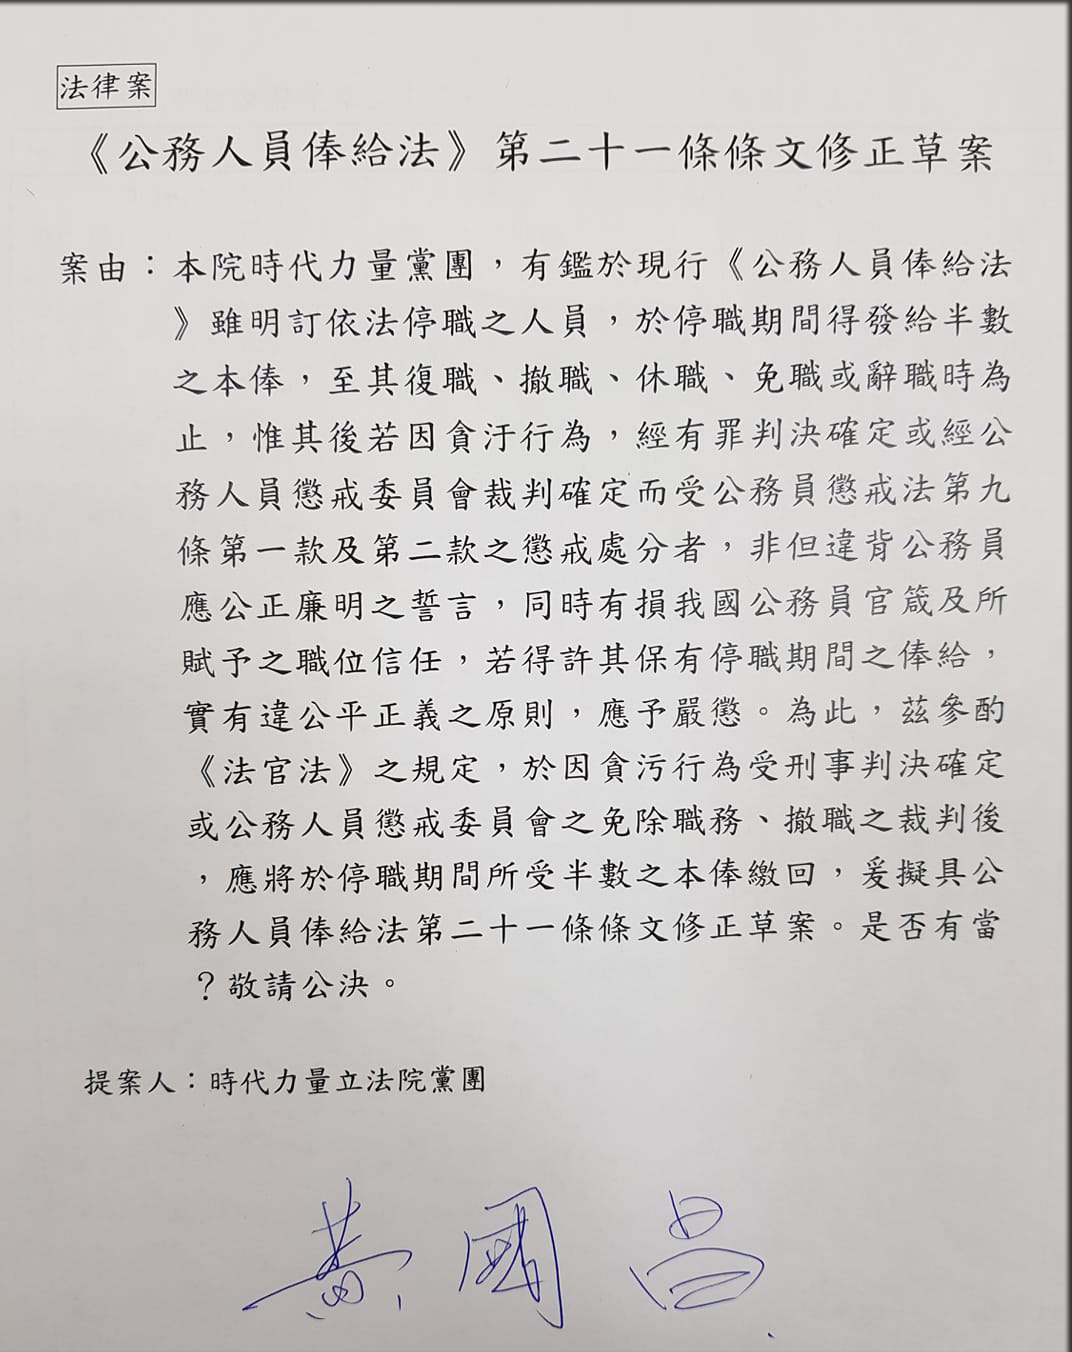 法律案
《公務人員俸給法》第二十一條條文修正草案
案由：本院時代力量黨團，有鑑於現行《公務人員俸給法
》雖明訂依法停職之人員，於停職期間得發給半數
之本俸，至其復職、撤職、休職、免職或辭職時為
止，惟其後若因貪汙行為，經有罪判決確定或經公
務人員懲戒委員會裁判確定而受公務員懲戒法第九
條第一款及第二款之懲戒處分者，非但違背公務員
應公正廉明之誓言，同時有損我國公務員官箴及所
賦予之職位信任，若得許其保有停職期間之俸給，
實有違公平正義之原則，應予嚴懲。為此，茲參酌
《法官法》之規定，於因貪污行為受刑事判決確定
或公務人員懲戒委員會之免除職務、撤職之裁判後
，應將於停職期間所受半數之本俸繳回，爰擬具公
務人員俸給法第二十一條條文修正草案。是否有當
？敬請公決。
提案人：時代力量立法院黨團
黃國昌